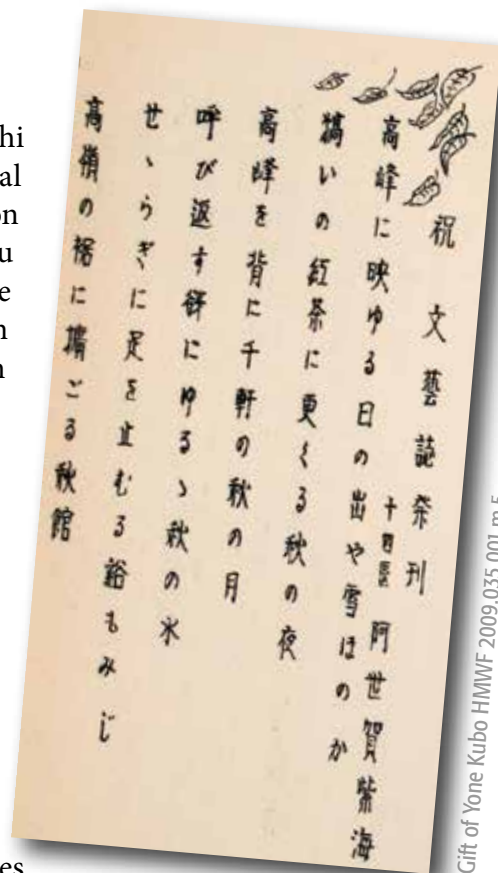 祝 文藝誌発刊
十四區 阿世賀紫海
高峰に映ゆる日の出や雪ほのか
犒いの紅茶に更くる秋の夜
高峰を背に千軒の秋の月
呼び返す谺にゆるゝ秋の水
せゝらぎに足を止むる谿もみじ
高嶺の裾に擴ごる秋館
Gift of Yone Kubo HMWF 2009.035.001 m 5